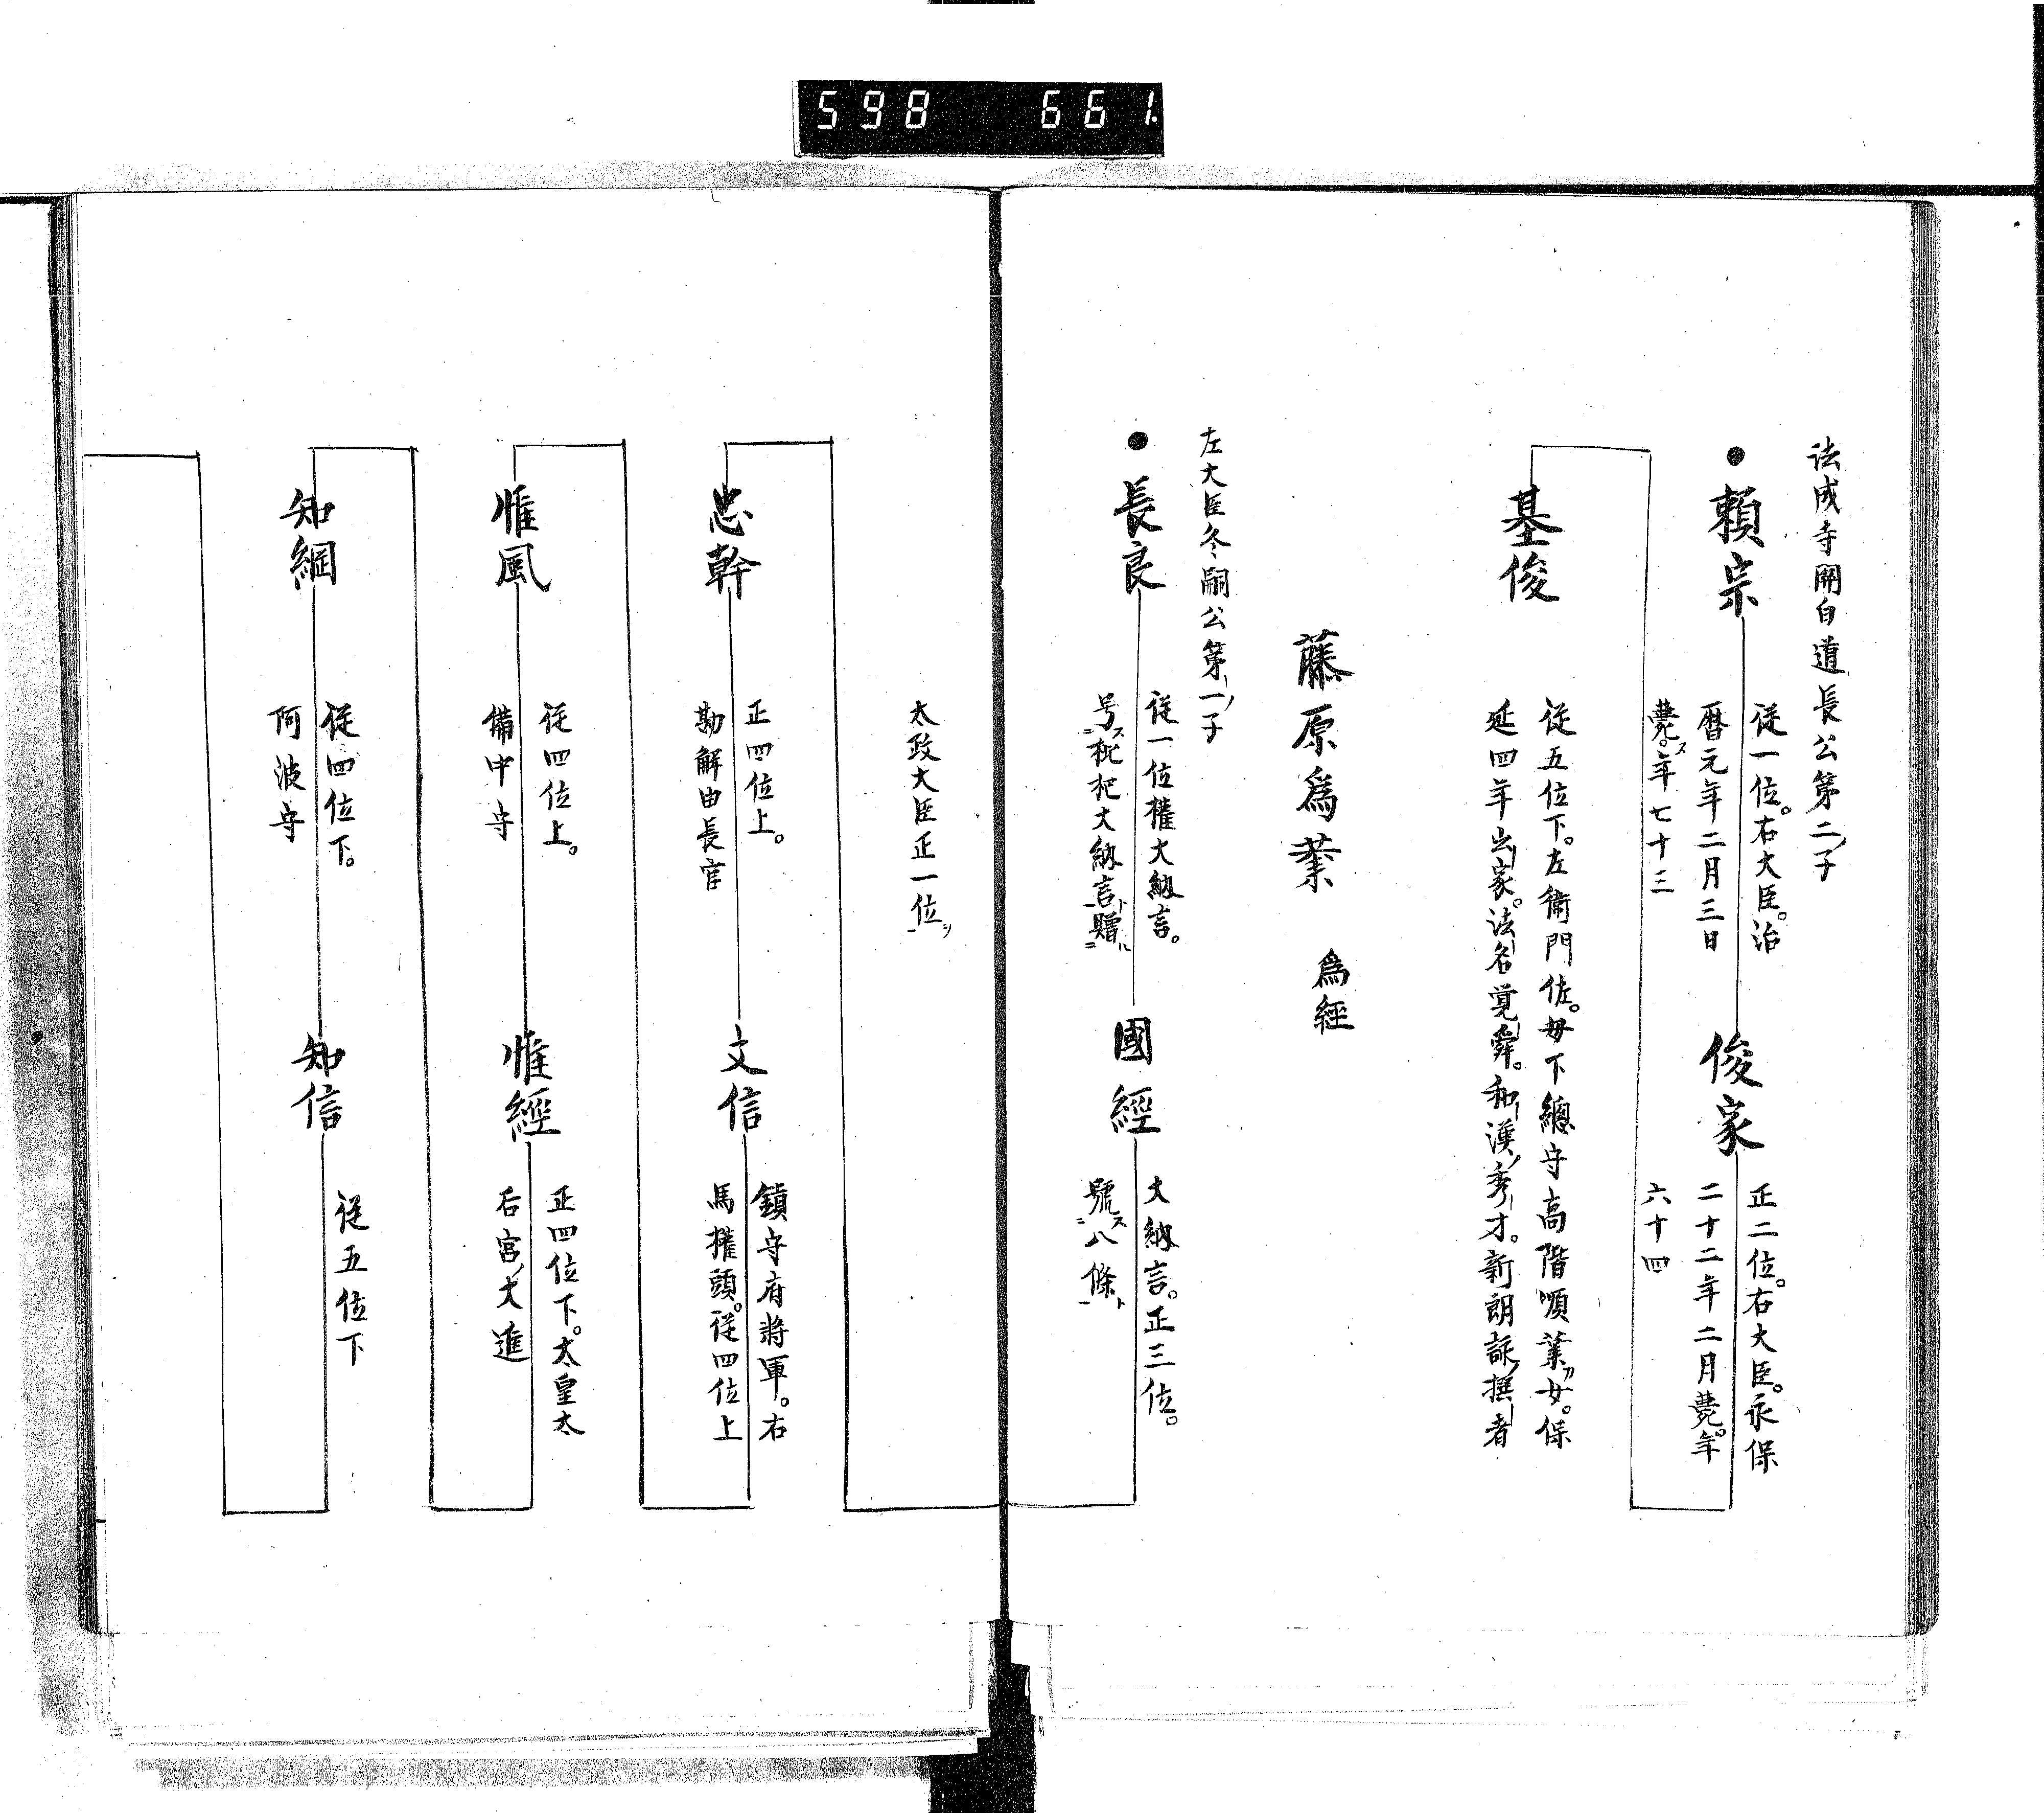 598 661.
法成寺関白道長公第二ノ子
●頼宗
従一位。右大臣。治
暦元年二月三日
薨ス。年七十三
俊家
正二位。右大臣。永保
二十二年二月薨。年
六十四
基俊
従五位下。左衞門佐。母下總守高階順業カ女。保
延四年出家。法名覚舜。和漢ノ秀才。新朗詠撰者
藤原為業 為經
左大臣冬嗣公第一ノ子
●長良
従一位權大納言。
号ス二枇杷大納言ト一贈ル二
國經
大納言。正三位。
號ス二八條ト一
太政大臣正一位ヲ一
忠幹
正四位上。
勘解由長官
文信
鎮守府將軍。右
馬權頭。従四位上
惟風
従四位上。
備中守
惟經
正四位下。太皇太
后宮ノ大進
知綱
従四位下。
阿波守
知信
従五位下